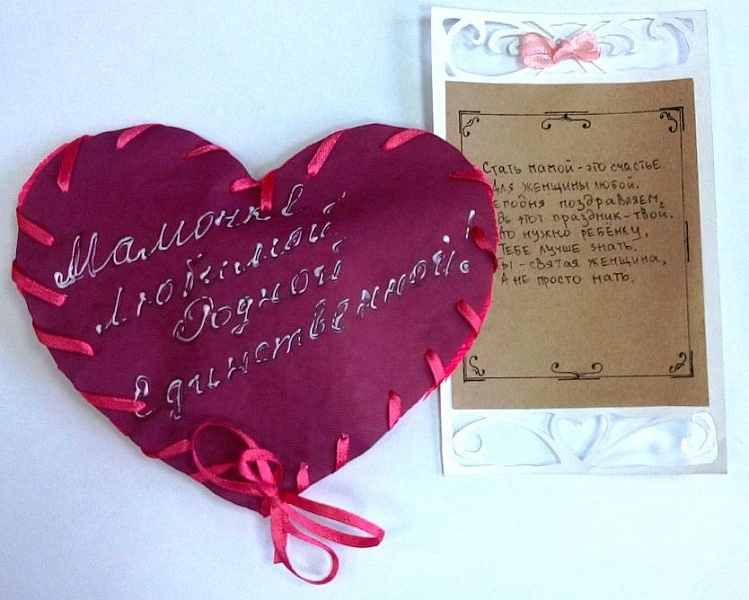 Мамочке
Любимой,
Родной,
Единственной!
Стать мамой - это счастье
Для женщины любой.
егодня поздравляем,
дь этот праздник - твой.
то нужно ребёнку,
Тебе лучше знать.
ы - святая женщина,
А не просто мать.